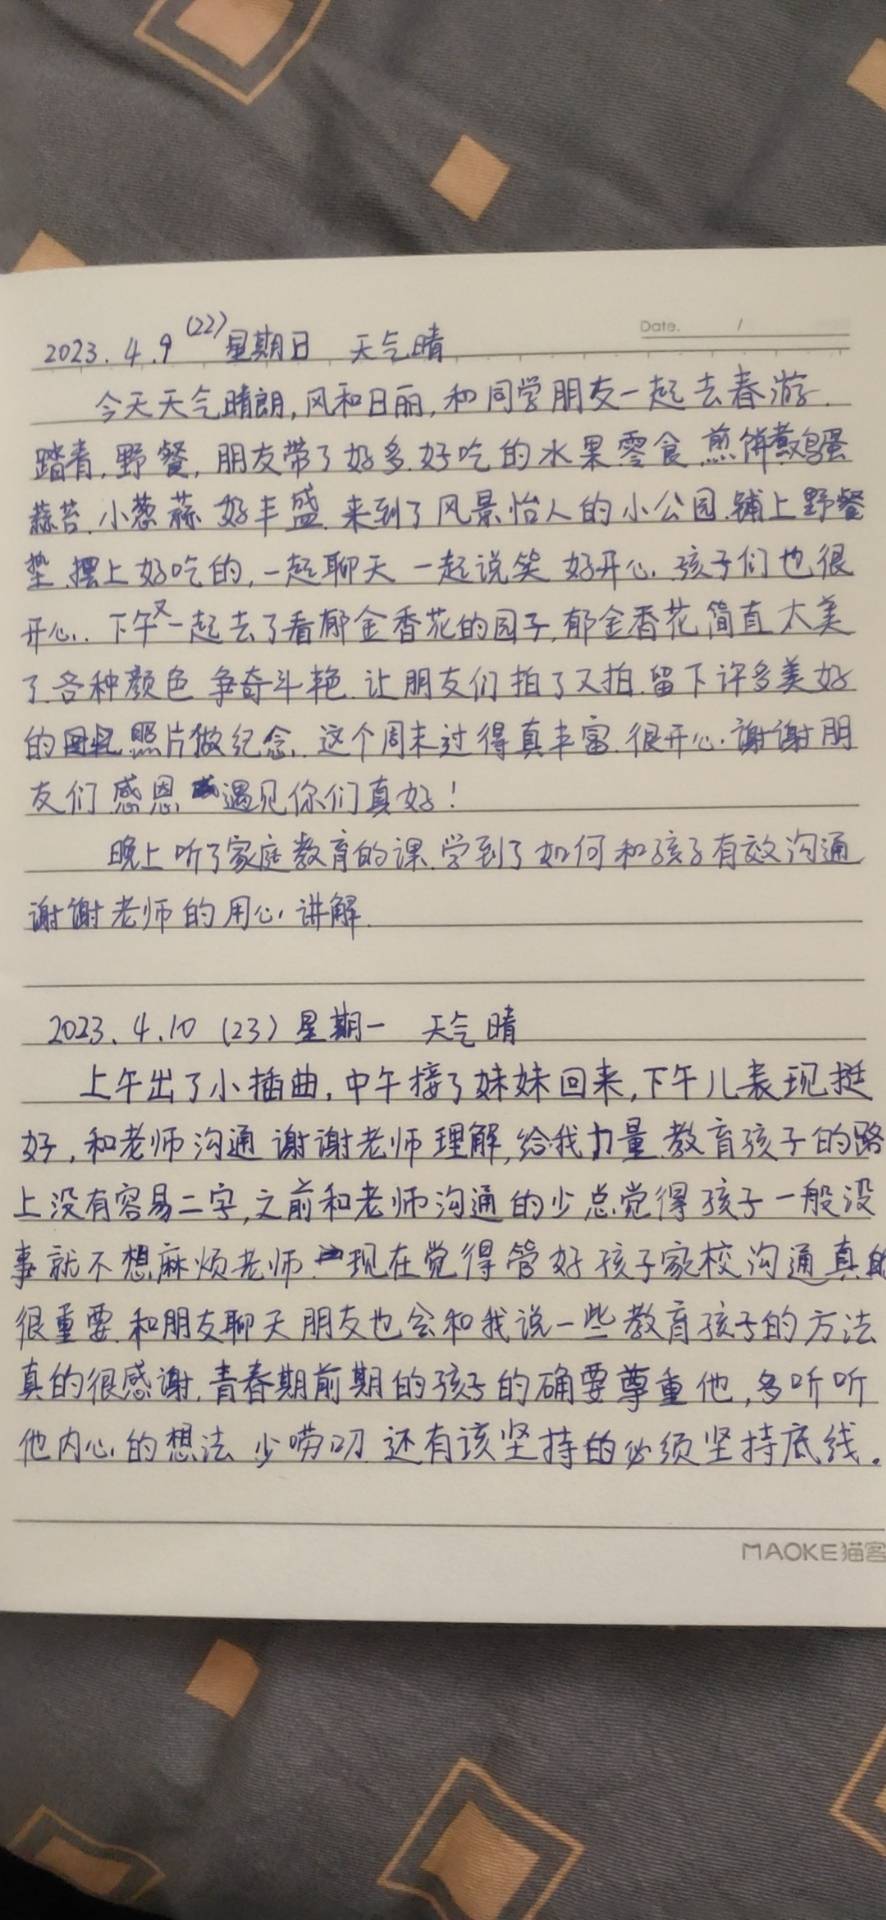 Date. /
2023.4.9 (22) 星期日 天气晴
今天天气晴朗,风和日丽,和同学朋友一起去春游.
踏青,野餐,朋友带了好多好吃的水果零食 煎饼煮鸡蛋
蒜苔.小葱蒜 好丰盛 来到了风景怡人的小公园.铺上野餐
垫 摆上好吃的,一起聊天 一起说笑 好开心.孩子们也很
开心.下午又一起去了看郁金香花的园子,郁金香花简直太美
了.各种颜色 争奇斗艳.让朋友们拍了又拍.留下许多美好
的 照片做纪念.这个周末过得真丰富.很开心.谢谢朋
友们 感恩 遇见你们真好!
晚上听了家庭教育的课.学到了如何和孩子有效沟通
谢谢老师的用心讲解.
2023.4.10 (23) 星期一 天气晴
上午出了小插曲,中午接了妹妹回来,下午儿表现挺
好,和老师沟通 谢谢老师理解,给我力量.教育孩子的路
上没有容易二字,之前和老师沟通的少总觉得孩子一般没
事就不想麻烦老师 现在觉得管好孩子家校沟通真的
很重要.和朋友聊天朋友也会和我说一些教育孩子的方法
真的很感谢.青春期前期的孩子的确要尊重他,多听听
他内心的想法 少唠叨 还有该坚持的必须坚持底线.
MAOKE猫客